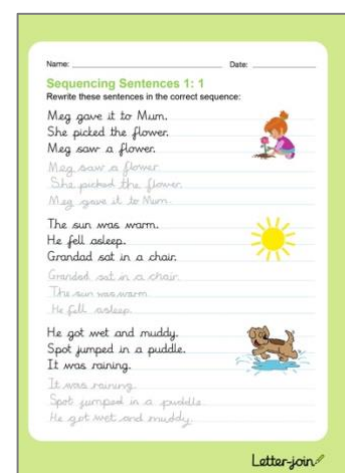 Name:
Date:
Sequencing Sentences 1: 1
Rewrite these sentences in the correct sequence:
Meg gave it to Mum.
She picked the flower.
Meg saw a flower.
Meg saw a flower.
She picked the flower.
Meg gave it to Mum.
The sun was warm.
He fell asleep.
Grandad sat in a chair.
Grandad sat in a chair.
The sun was warm.
He fell asleep.
He got wet and muddy.
Spot jumped in a puddle.
It was raining.
It was raining.
Spot jumped in a puddle.
He got wet and muddy.
Letter-join